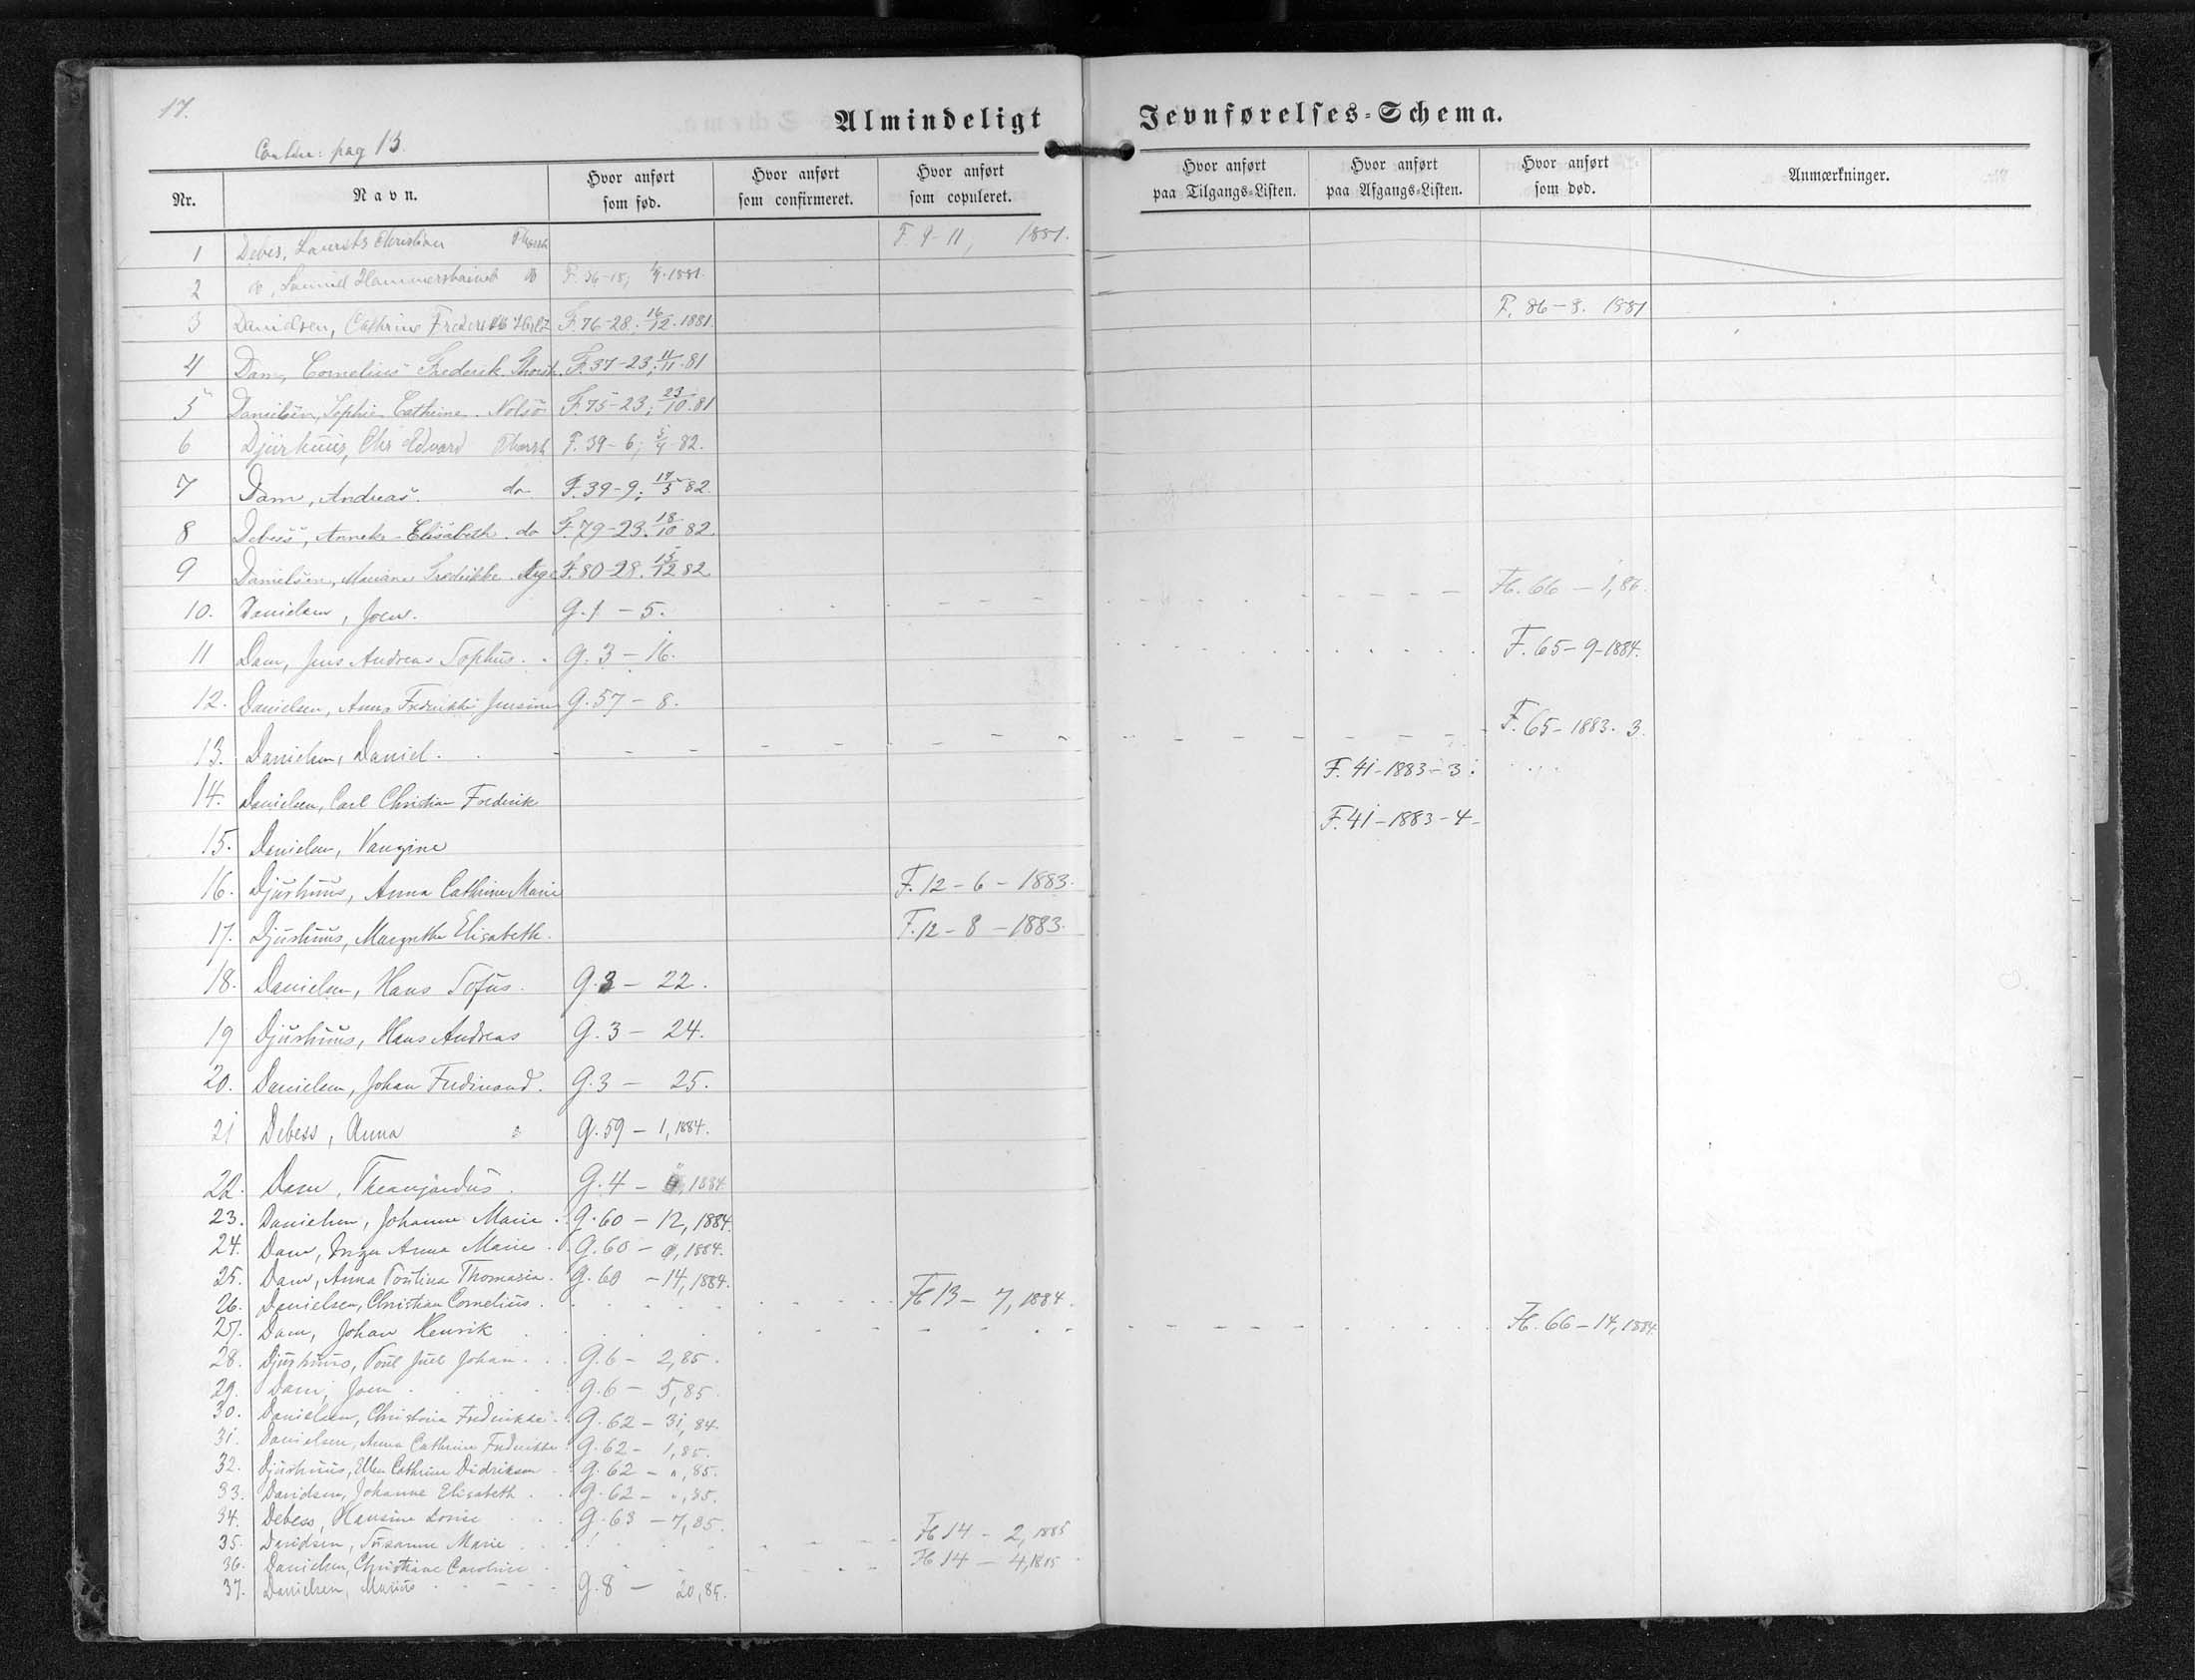 17.
Almindeligt Jevnførelses-Schema.
pag 13.
Nr. Navn. Hvor anført som fød. Hvor anført som confirmeret. Hvor anført som copuleret. Hvor anført paa Tilgangs-Listen. Hvor anført paa Afgangs-Listen. Hvor anført som død. Anmærkninger.
1 Debes, Laurits Christian F. 9-11, 1881.
2 F. 36-18, 1881.
3 Danielsen, Cathrine Frederikke F. 76-28. 16/12. 1881. F. 86-8. 1881
4 Dam, Cornelius Frederik Thorsh. F. 37-23; 11/11. 81
5 Danielsen, Sophie Cathrine. Nolsö F. 75-23; 23/10. 81
6 Djurhuus, Chr Edvard Thorsh F. 39-6; 5/4 82.
7 Dam, Andreas. do F. 39-9; 17/5 82.
8 Debess, Anneke Elisabeth. do F. 79-23. 18/10 82.
9 Danielsen, Mariane Fredrikke. F. 80-28. 15/12 82. F. 66 - 1, 86.
10. Danielsen, Joen. G. 1 - 5.
11 Dam, Jens Andreas Sophus. G. 3 - 16. F. 65-9-1884.
12. Danielsen, Anna Fredrikke Jensine G. 57 - 8.
13. Danielsen, Daniel. F. 65-1883. 3.
14. Danielsen, Carl Christian Frederik F. 41-1883-3.
15. Danielsen, Vangine F. 41-1883-4-
16. Djurhuus, Anna Cathrine Marie F. 12-6-1883.
17. Djurhuus, Margrethe Elisabeth. F. 12-8-1883.
18. Danielsen, Hans Sofus. G. 3 - 22.
19 Djurhuus, Hans Andreas G. 3 - 24.
20. Danielsen, Johan Ferdinand. G. 3 - 25.
21 Debess, Anna G. 59 - 1, 1884.
22. Dam, G. 4 - 1884
23. Danielsen, Johanne Marie. G. 60 - 12, 1884.
24. Dam, Inger Anna Marie. G. 60 - 1884.
25. Dam, Anna Poulina Thomasia. G. 60 - 14, 1884.
26. Danielsen, Christian Cornelius. F. 13 - 7, 1884.
27. Dam, Johan Henrik F. 66-14, 1884
28. Djurhuus, Poul Juel Johan. G. 6 - 2, 85.
29. Dam, Joen G. 6 - 5, 85.
30. Danielsen, Christina Fredrikke G. 62 - 31, 84.
31. Danielsen, Anna Cathrine Fredrikke G. 62 - 1, 85.
32. Djurhuus, Ellen Cathrine Didriksen G. 62 - ", 85.
33. Davidsen, Johanne Elisabeth G. 62 - ", 85.
34. Debess, Hansine Lovise G. 63 - 7, 85.
35. Davidsen, Susanne Marie F. 14 - 2, 1885
36. Danielsen, Christiane Caroline F. 14 - 4, 1885
37. Danielsen, Marius G. 8 - 20, 85.